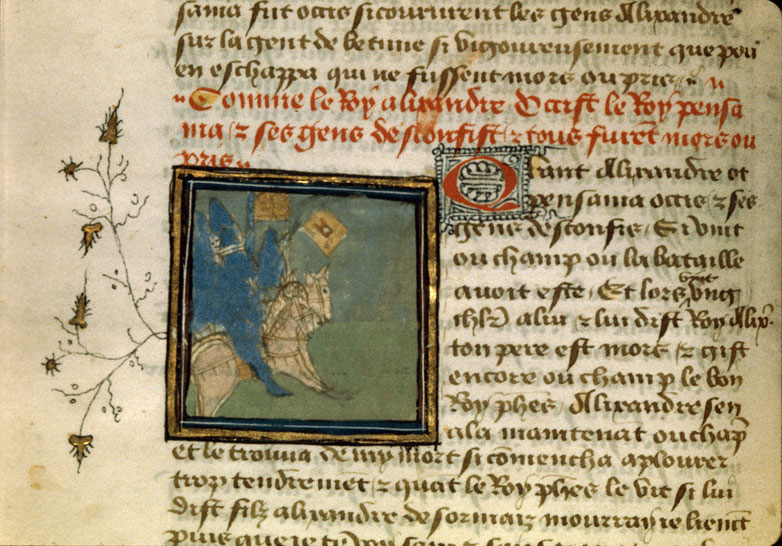 sama fut occis si coururent les gens Alixandre
sur la gent de betune si vigoureusement que pou
en eschappa qui ne fussent mors ou pris
Comme le Roy alixandre Occist le Roy pensa
ma & ses gens desconfist & tous furēt mors ou
pris
Quant Alixandre ot
pensama occis & ses
gens desconfis. Si vint
ou champ ou la bataille
avoit este. Et lors vint ung
chlr a lui & lui dist Roy Alix
ton pere est mort & gist
encore ou champ le bon
Roy phes. Alixandre sen
ala maintenāt ou chāp
et le trouva demy mort si cōmencha a plourer
trop tendremēt & quāt le Roy phes le vit si lui
dist filz alixandre desormais mourray ie liemēt
puis que ie